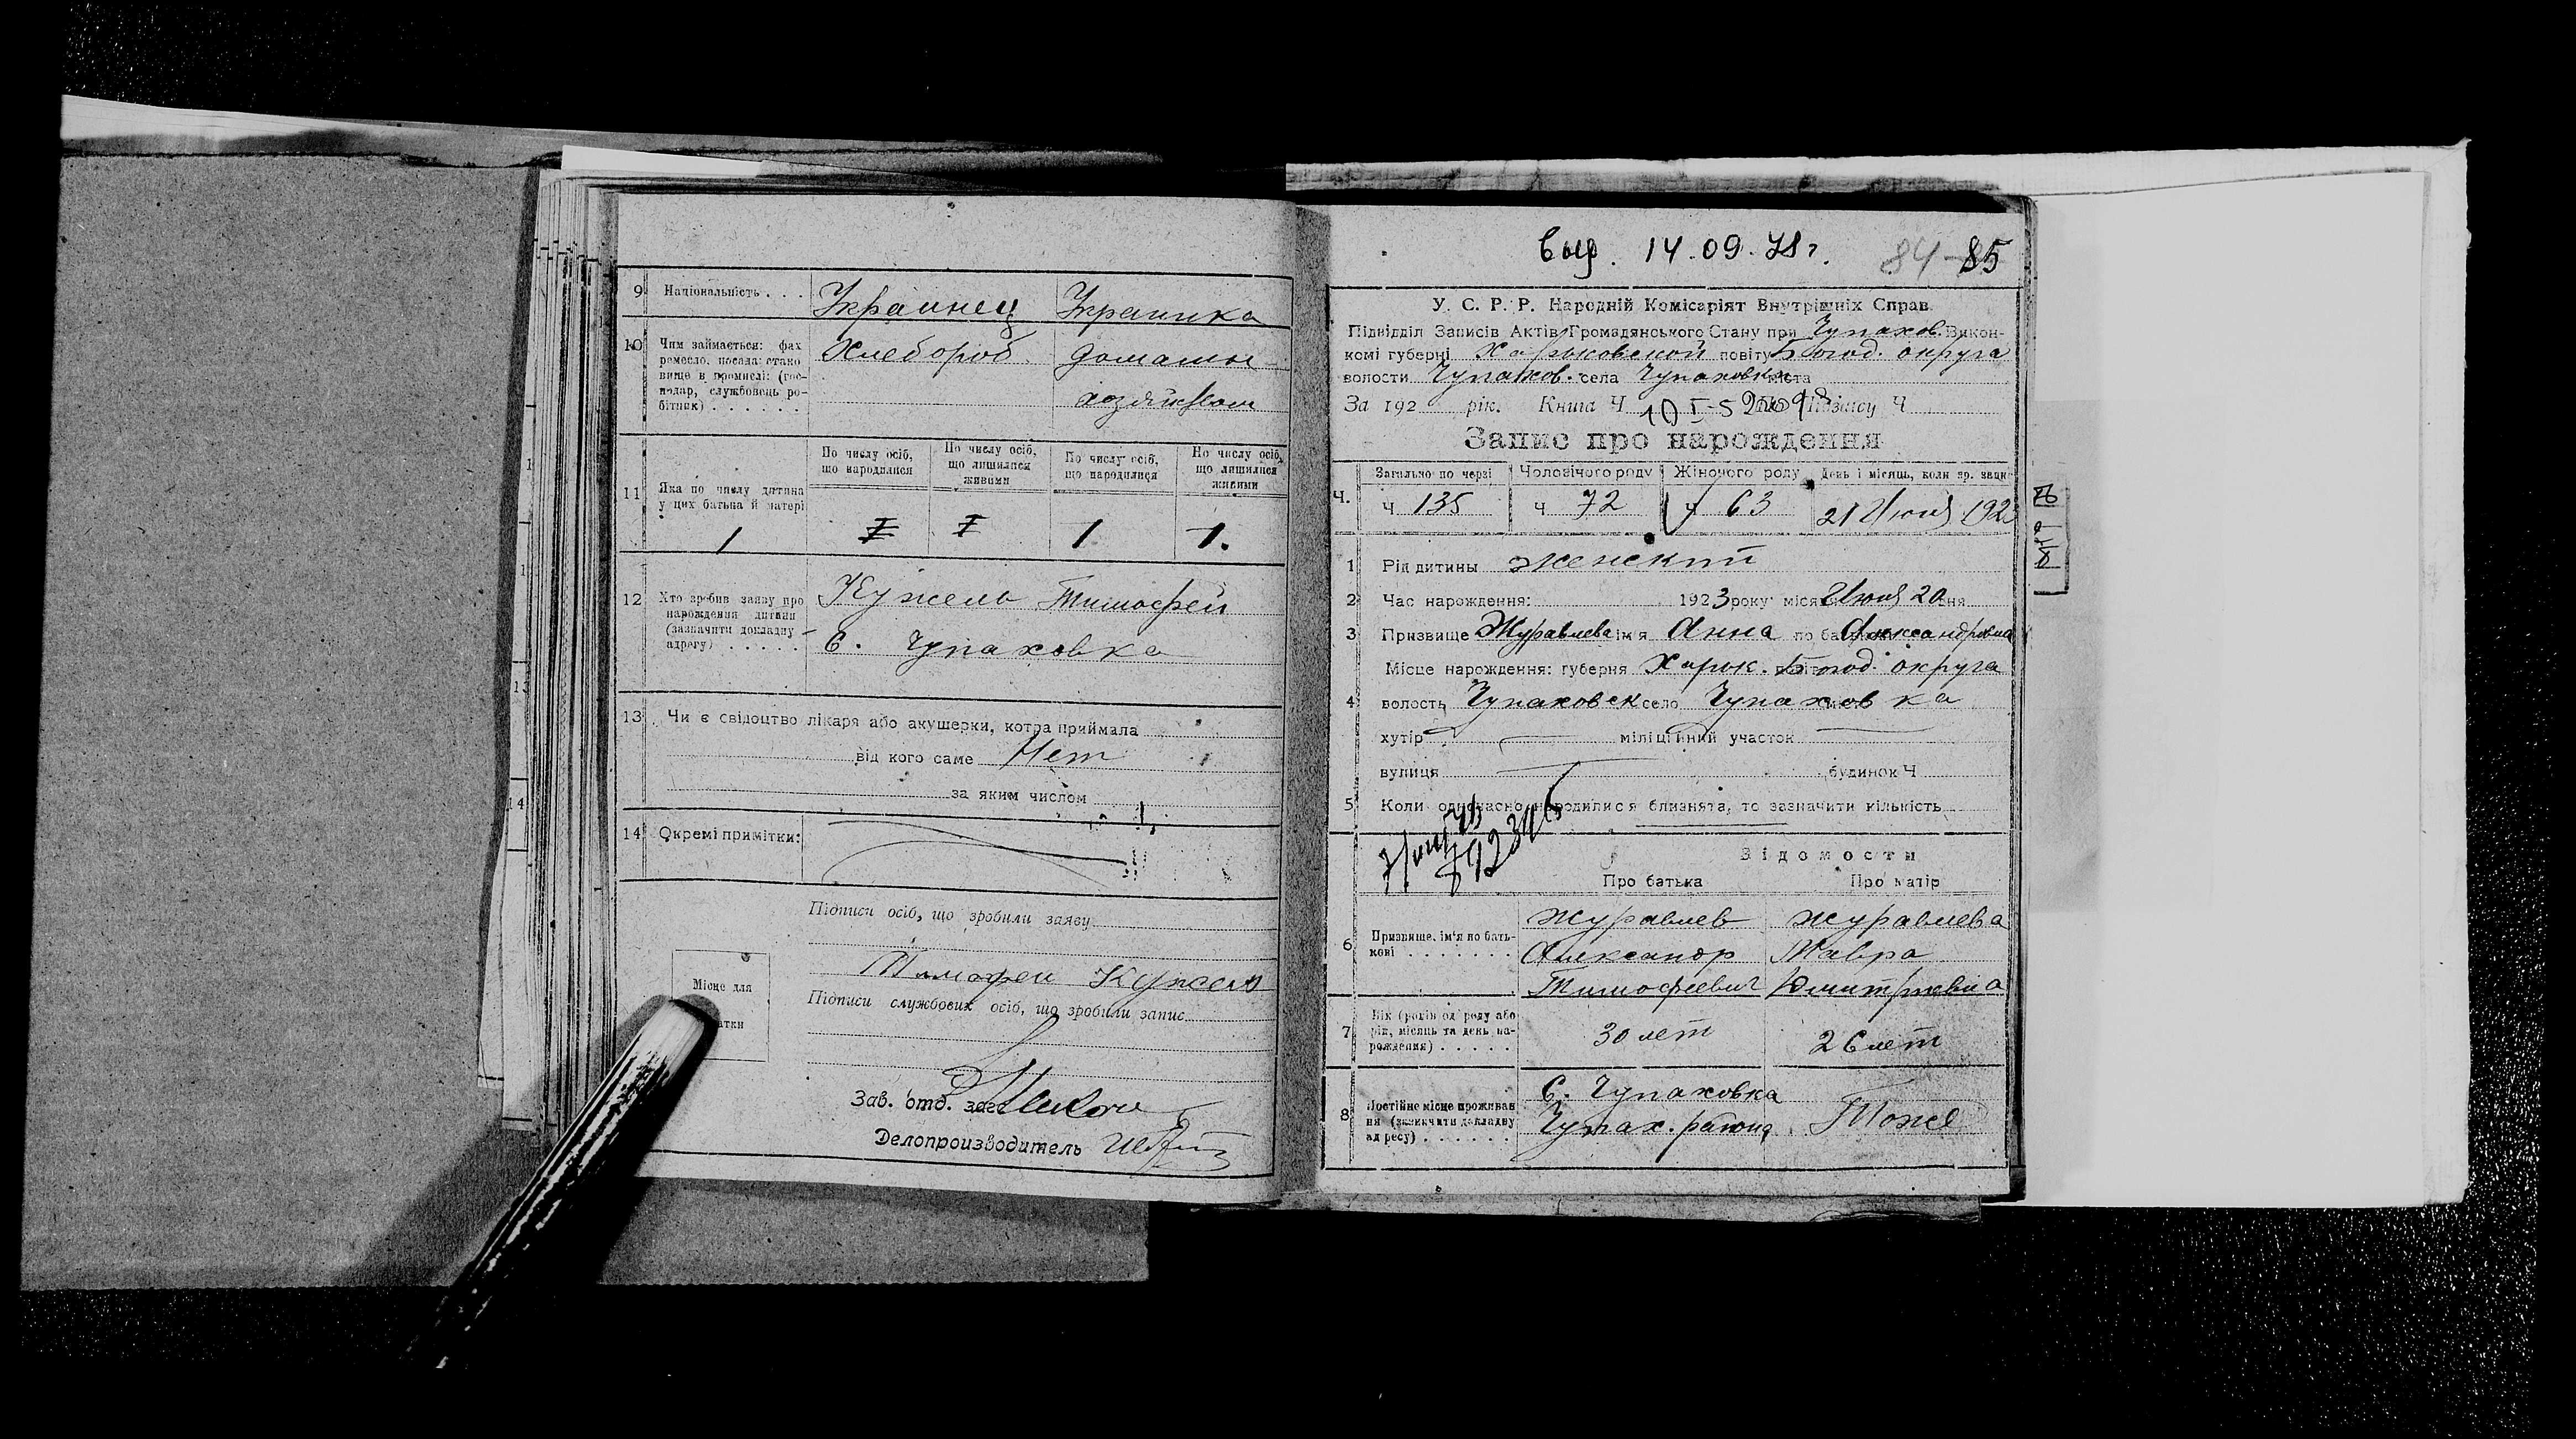 9 Національність . . . Украинец Украинка
10 Чим займається: фах Хлебороб домашн
ремесло, посада: стано
вище в промислі: (гос- хозяйством
подар, службовець ро-
бітник) . . . . . .
По числу осіб, що народилися По числу осіб, що лишилися живими По числу осіб, що народилися По числу осіб, що лишилися живими
11 Яка по числу дитина
у цих батька й матері
1 I I 1 1.
12 Хто зробив заяву про Кужель Тимофей
народження дитини
(зазначити докладну с. Чупаховка
адресу) . . . . .
13 Чи є свідоцтво лікаря або акушерки, котра приймала
від кого саме Нет
за яким числом
14 Окремі примітки:
Підписи осіб, що зробили заяву
Тимофей Кужель
Місце для
Підписи службових осіб, що зробили запис
Зав. отд. загс
Делопроизводитель
Выд. 14.09.78г. 84 85
У. С. Р. Р. Народній Комісаріят Внутрішніх Справ.
Підвідділ Записів Актів Громадянського Стану при Чупахов. Викон-
комі губерні Харьковской повіту Богод. округа
волости Чупахов. села Чупаховка міста
За 192 рік. Книга Ч запису Ч
Запис про народження
Загально по черзі Чоловічого роду Жіночого роду День і місяць, коли зр. запис
Ч. Ч 135 Ч 72 Ч 63 21 Июня 1923
1 Рід дитини женский
2 Час народження: 1923 року місяця Июня 20 дня
3 Призвище Журавлева ім'я Анна по батькові Александровна
Місце народження: губерня Харьк. Богод. округа
4 волость Чупаховск село Чупаховка
хутір міліційний участок
вулиця будинок Ч
5 Коли одночасно народилися близнята, то зазначити кількість
Відомости
Про батька Про матір
Журавлев Журавлева
6 Призвище, ім'я по бать-
кові . . . . . . . Александр Мавра
Тимофеевич Дмитриевна
7 Вік (років од роду або
рік, місяць та день на- 30 лет 26 лет
родження) . . . . .
с. Чупаховка
8 Постійне місце проживан
ня (зазначити докладну Чупах. района Тоже
адресу) . . . . . .